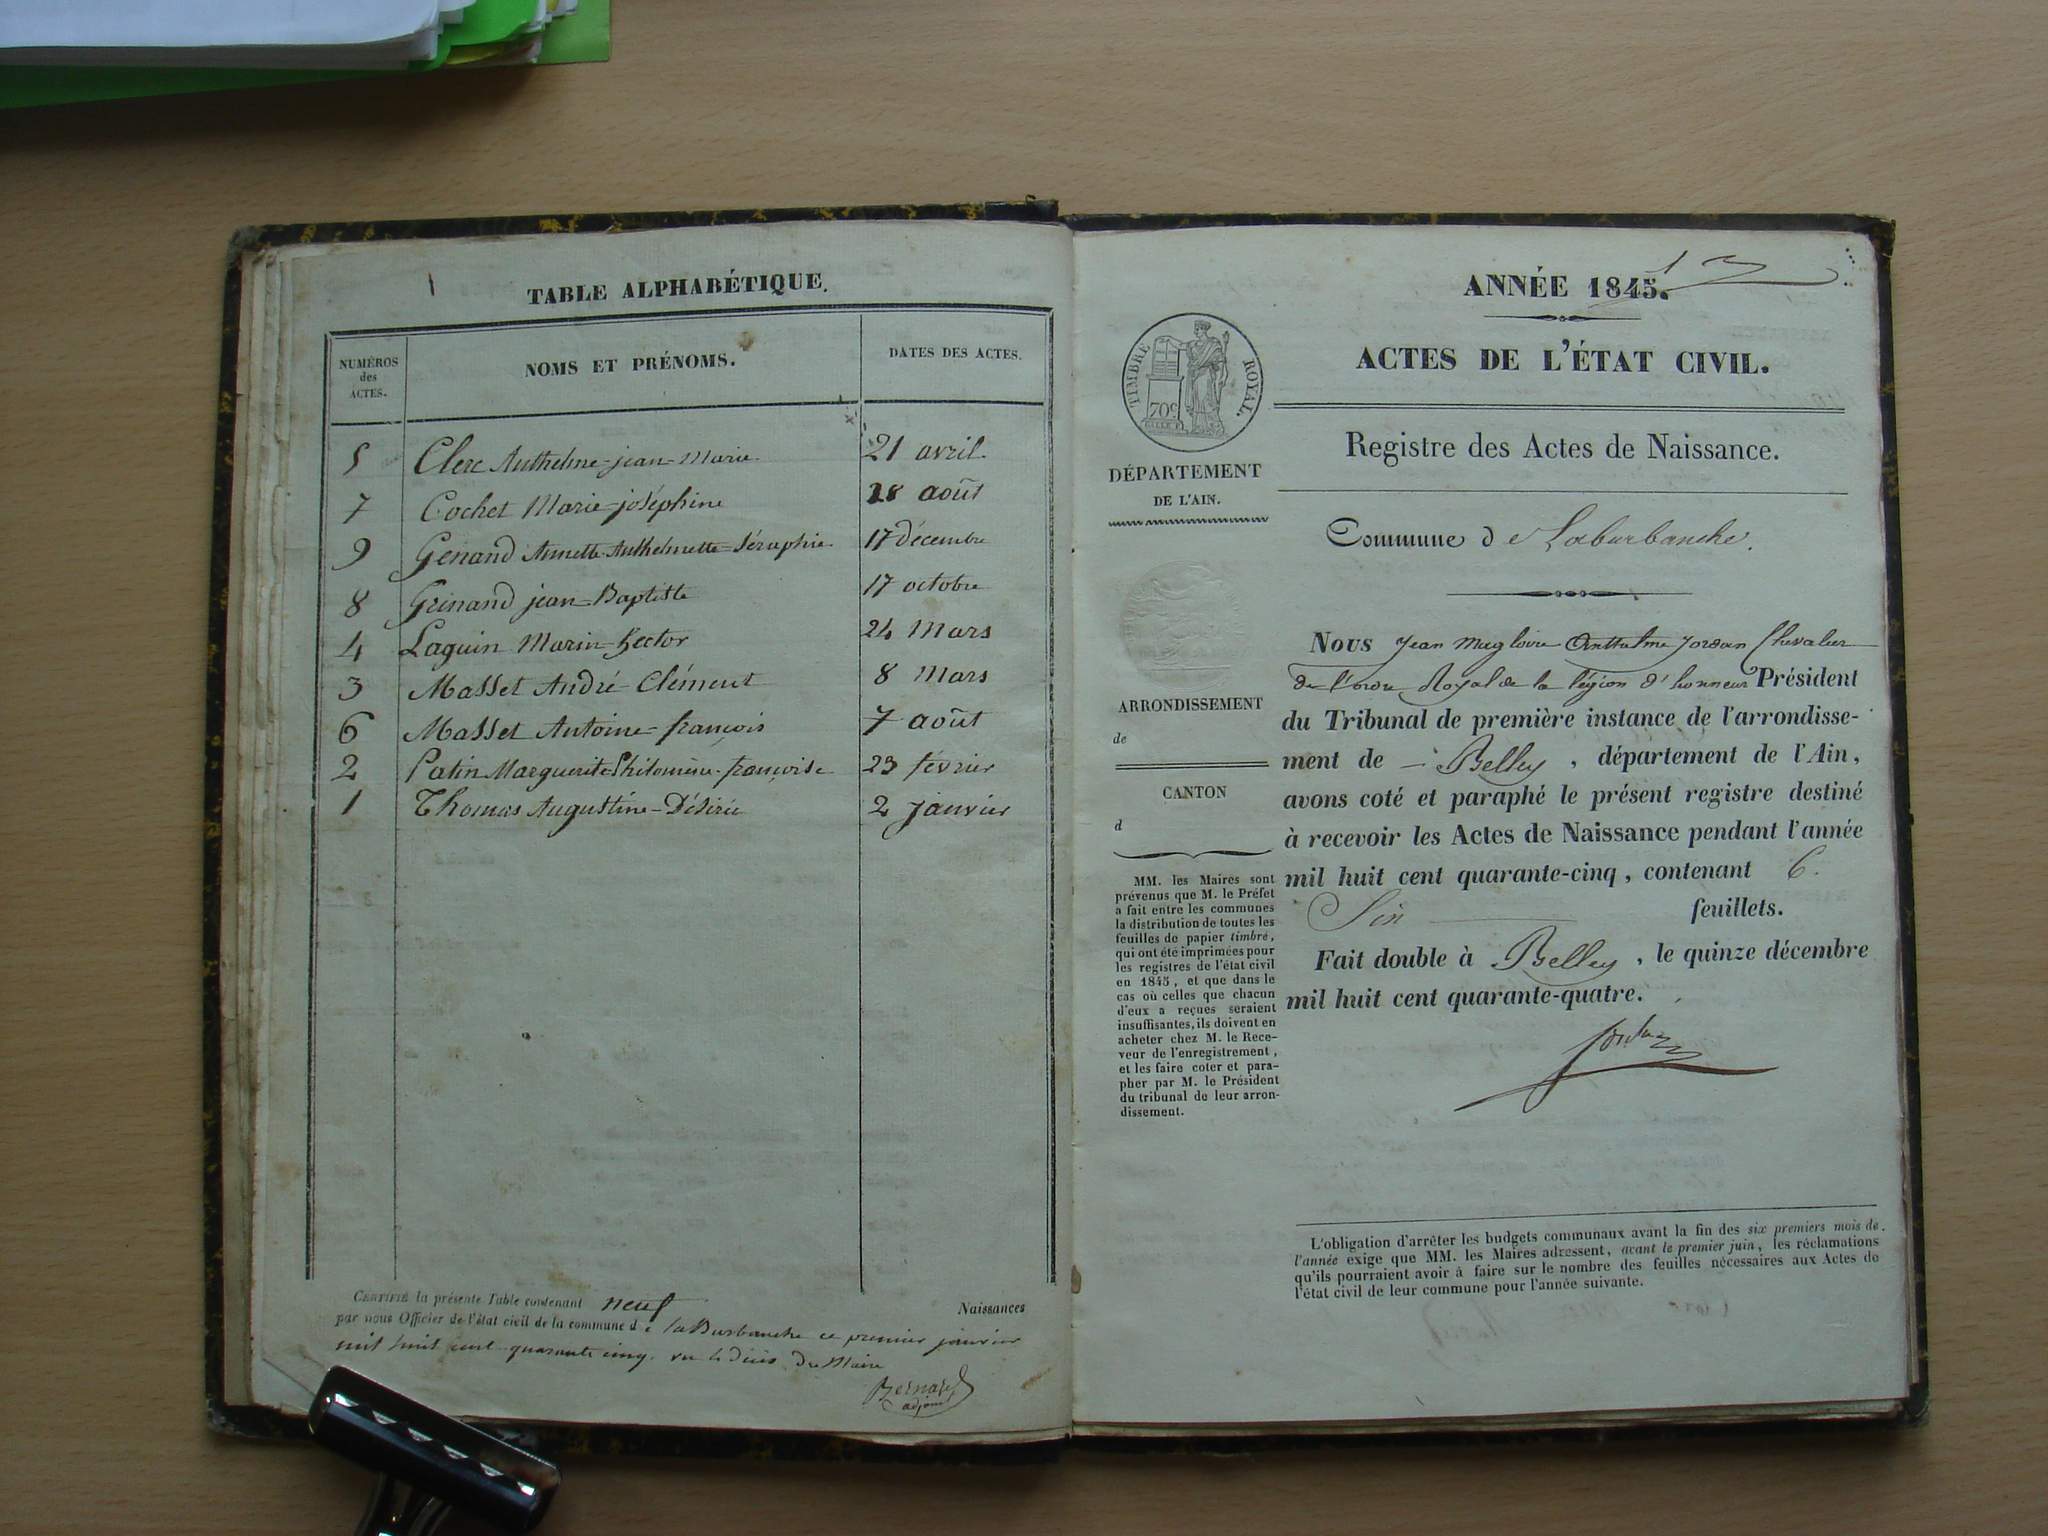 TABLE ALPHABÉTIQUE.
NUMÉROS
des
ACTES.
NOMS ET PRÉNOMS.
DATES DES ACTES.
5 Clerc Anthelme-jean-Marie 21 avril.
7 Cochet Marie-joséphine 28 août
9 Genand Annette-Anthelmette-Séraphie 17 décembre
8 Grinand jean-Baptiste 17 octobre
4 Laguin Marin-hector 24 Mars
3 Masset André-Clément 8 Mars
6 Masset Antoine-françois 7 août
2 Patin Marguerite Philomène-françoise 23 février
1 Thomas Augustine-Désirée 2 janvier
CERTIFIÉ la présente Table contenant neuf Naissances
par nous Officier de l'état civil de la commune de la Burbanche ce premier janvier
mil huit cent quarante cinq. vu le décès du Maire
Bernard
adjoint
ANNÉE 1845.
1
ACTES DE L'ÉTAT CIVIL.
TIMBRE ROYAL.
70c
Registre des Actes de Naissance.
DÉPARTEMENT
DE L'AIN.
Commune de Laburbanche.
Nous Jean Magloire Anthelme Jordan Chevalier
de l'ordre Royal de la légion d'honneur Président
du Tribunal de première instance de l'arrondisse-
ment de Belley, département de l'Ain,
avons coté et paraphé le présent registre destiné
à recevoir les Actes de Naissance pendant l'année
mil huit cent quarante-cinq, contenant 6.
Six feuillets.
Fait double à Belley, le quinze décembre
mil huit cent quarante-quatre.
Jordan
ARRONDISSEMENT
de
CANTON
d
MM. les Maires sont
prévenus que M. le Préfet
a fait entre les communes
la distribution de toutes les
feuilles de papier timbré,
qui ont été imprimées pour
les registres de l'état civil
en 1845, et que dans le
cas où celles que chacun
d'eux a reçues seraient
insuffisantes, ils doivent en
acheter chez M. le Rece-
veur de l'enregistrement,
et les faire coter et para-
pher par M. le Président
du tribunal de leur arron-
dissement.
L'obligation d'arrêter les budgets communaux avant la fin des six premiers mois de
l'année exige que MM. les Maires adressent, avant le premier juin, les réclamations
qu'ils pourraient avoir à faire sur le nombre des feuilles nécessaires aux Actes de
l'état civil de leur commune pour l'année suivante.